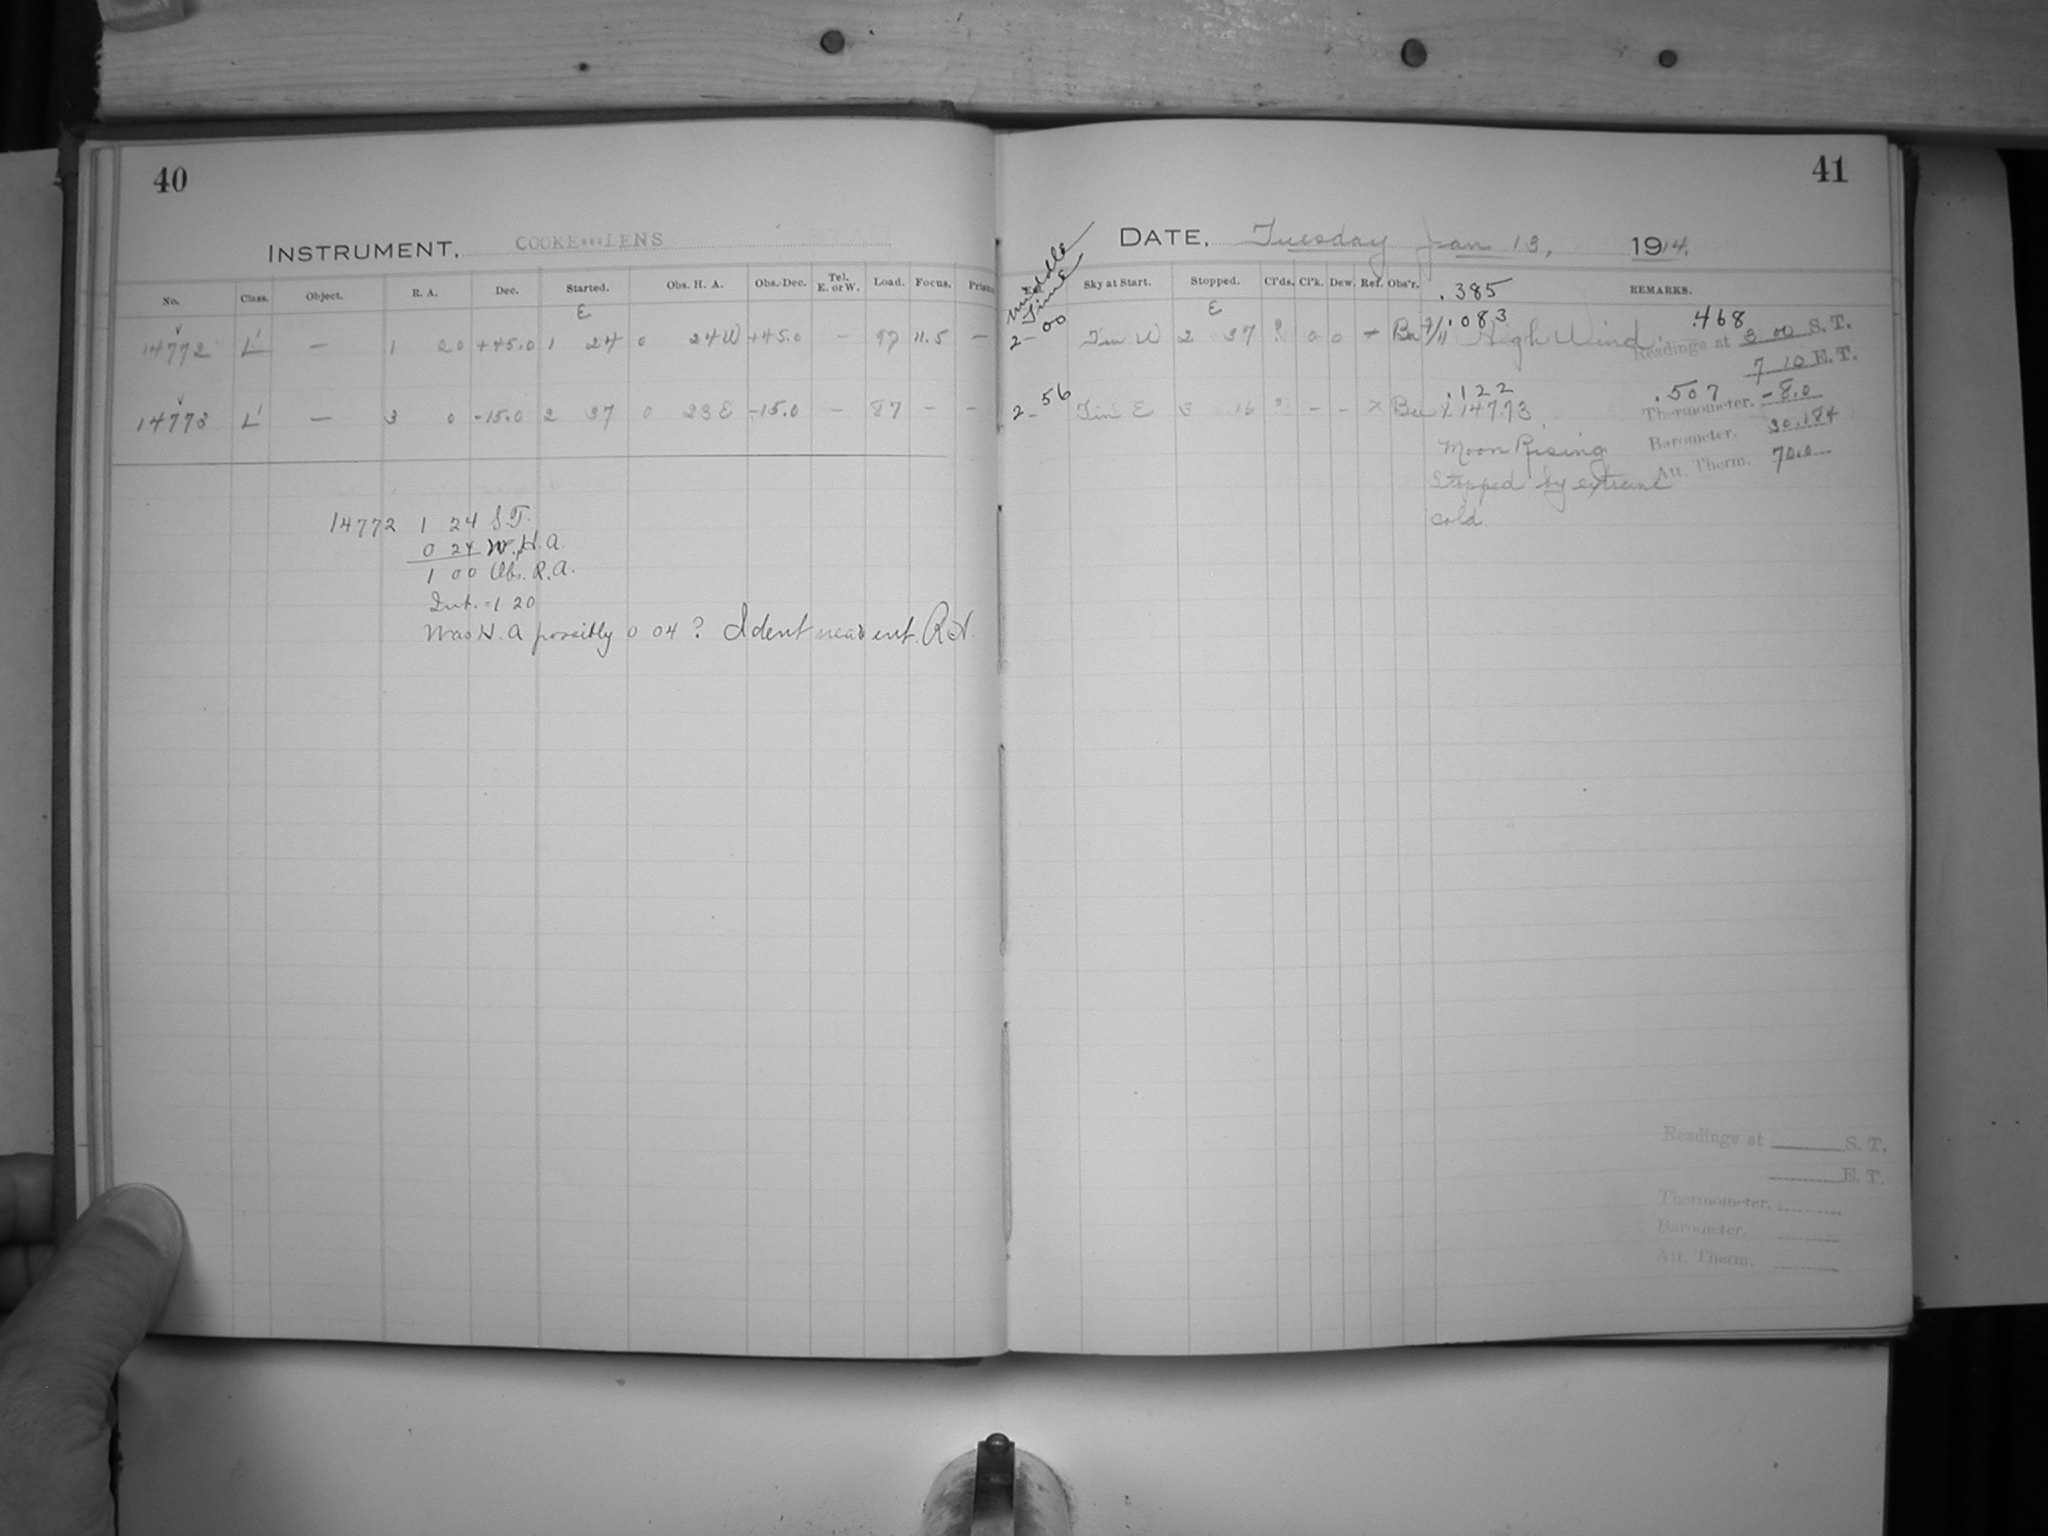 40
INSTRUMENT. COOKE LENS
No. Class. Object. R. A. Dec. Started. Obs. H. A. Obs. Dec. Tel. E. or W. Load. Focus. Prism.
E
14772 L' — 1 20 +45.0 1 24 0 24 W +45.0 — 97 11.5 —
14773 L' — 3 0 -15.0 2 37 0 23 E -15.0 — 87 - -
14772 1 24 S.T.
0 24 W. H. A.
1 00 Obs. R. A.
Int. = 1 20
Was H. A possibly 0 04 ? Ident near int. R.A.
41
DATE. Tuesday Jan 13, 1914.
middle Time
Sky at Start. Stopped. Cl'ds. Cl'k. Dew. Ref. Obs'r. REMARKS.
.385
E
2-00 W 2 37 ? 0 0 .083 High Wind. .468
Readings at 3 00 S. T.
7 10 E. T.
2-56 E 3 16 ? - - X 14773 .122 .507
Thermometer. -8.0
Moon Rising Barometer. 30.184
Stopped by extreme Att. Therm. 70.0
cold.
Readings at S. T.
E. T.
Thermometer.
Barometer.
Att. Therm.